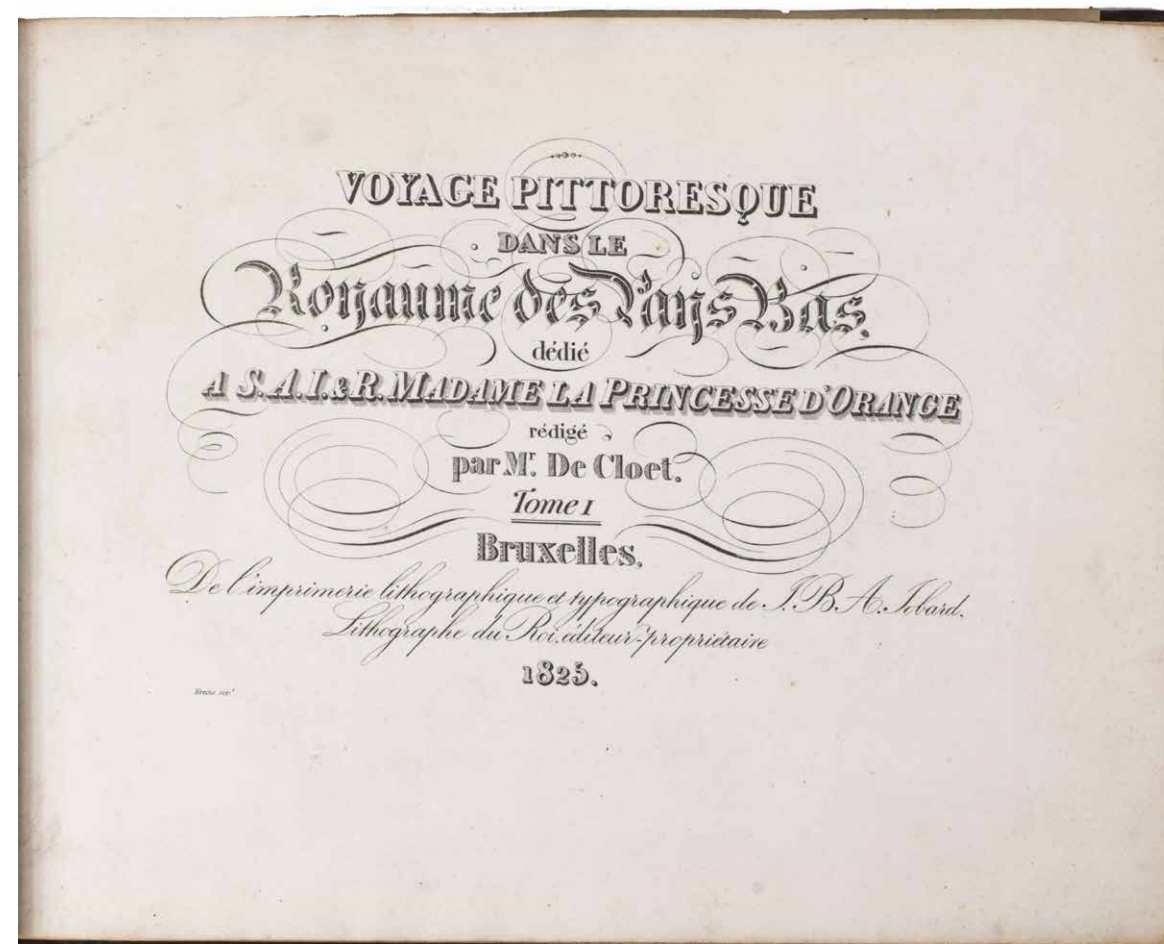 VOYAGE PITTORESQUE
DANS LE
Royaume des Pays Bas.
dédié
A S.A.I.&R. MADAME LA PRINCESSE D'ORANGE
rédigé
par Mr. De Cloet.
Tome I
Bruxelles.
De l'imprimerie lithographique et typographique de J.B.A. Jobard.
Lithographe du Roi, éditeur-propriétaire
1825.